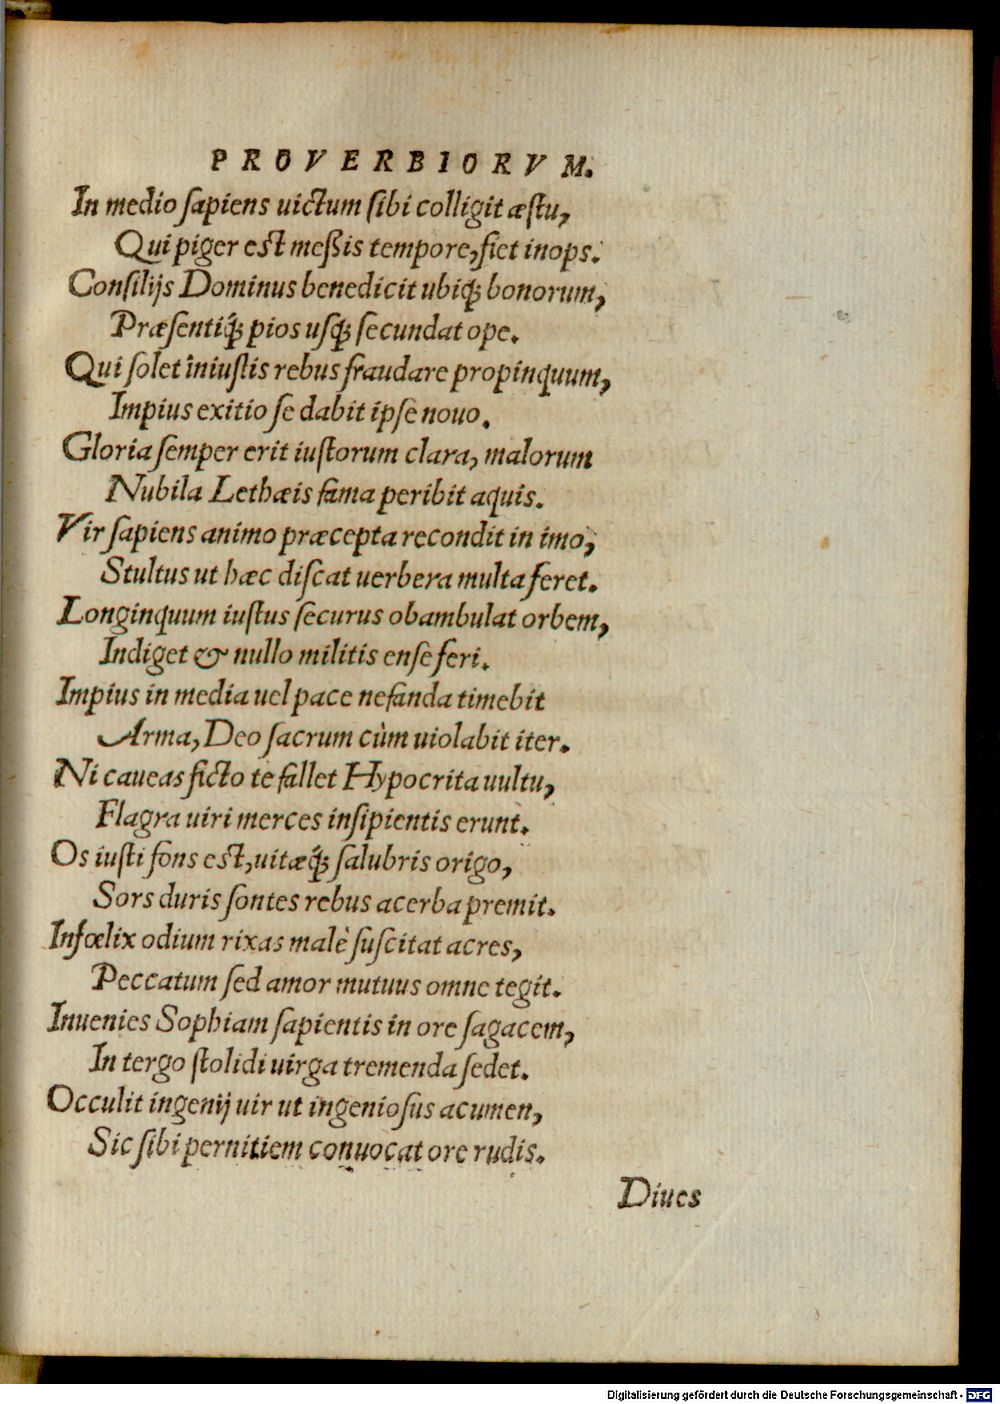 PROVERBIORVM.
In medio ſapiens uictum ſibi colligit æſtu,
Qui piger eſt meßis tempore, fiet inops.
Conſilijs Dominus benedicit ubiq́; bonorum,
Præſentiq́; pios uſq́; ſecundat ope.
Qui ſolet iniuſtis rebus fraudare propinquum,
Impius exitio ſe dabit ipſe nouo.
Gloria ſemper erit iuſtorum clara, malorum
Nubila Lethæis fama peribit aquis.
Vir ſapiens animo præcepta recondit in imo,
Stultus ut hæc diſcat uerbera multa feret.
Longinquum iuſtus ſecurus obambulat orbem,
Indiget & nullo militis enſe feri.
Impius in media uel pace nefanda timebit
Arma, Deo ſacrum cùm uiolabit iter.
Ni caueas ficto te fallet Hypocrita uultu,
Flagra uiri merces inſipientis erunt.
Os iuſti fons eſt, uitæq́; ſalubris origo,
Sors duris ſontes rebus acerba premit.
Infœlix odium rixas malè ſuſcitat acres,
Peccatum ſed amor mutuus omne tegit.
Inuenies Sophiam ſapientis in ore ſagacem,
In tergo ſtolidi uirga tremenda ſedet.
Occulit ingenij uir ut ingenioſus acumen,
Sic ſibi pernitiem conuocat ore rudis.
Diues
Digitalisierung gefördert durch die Deutsche Forschungsgemeinschaft - DFG